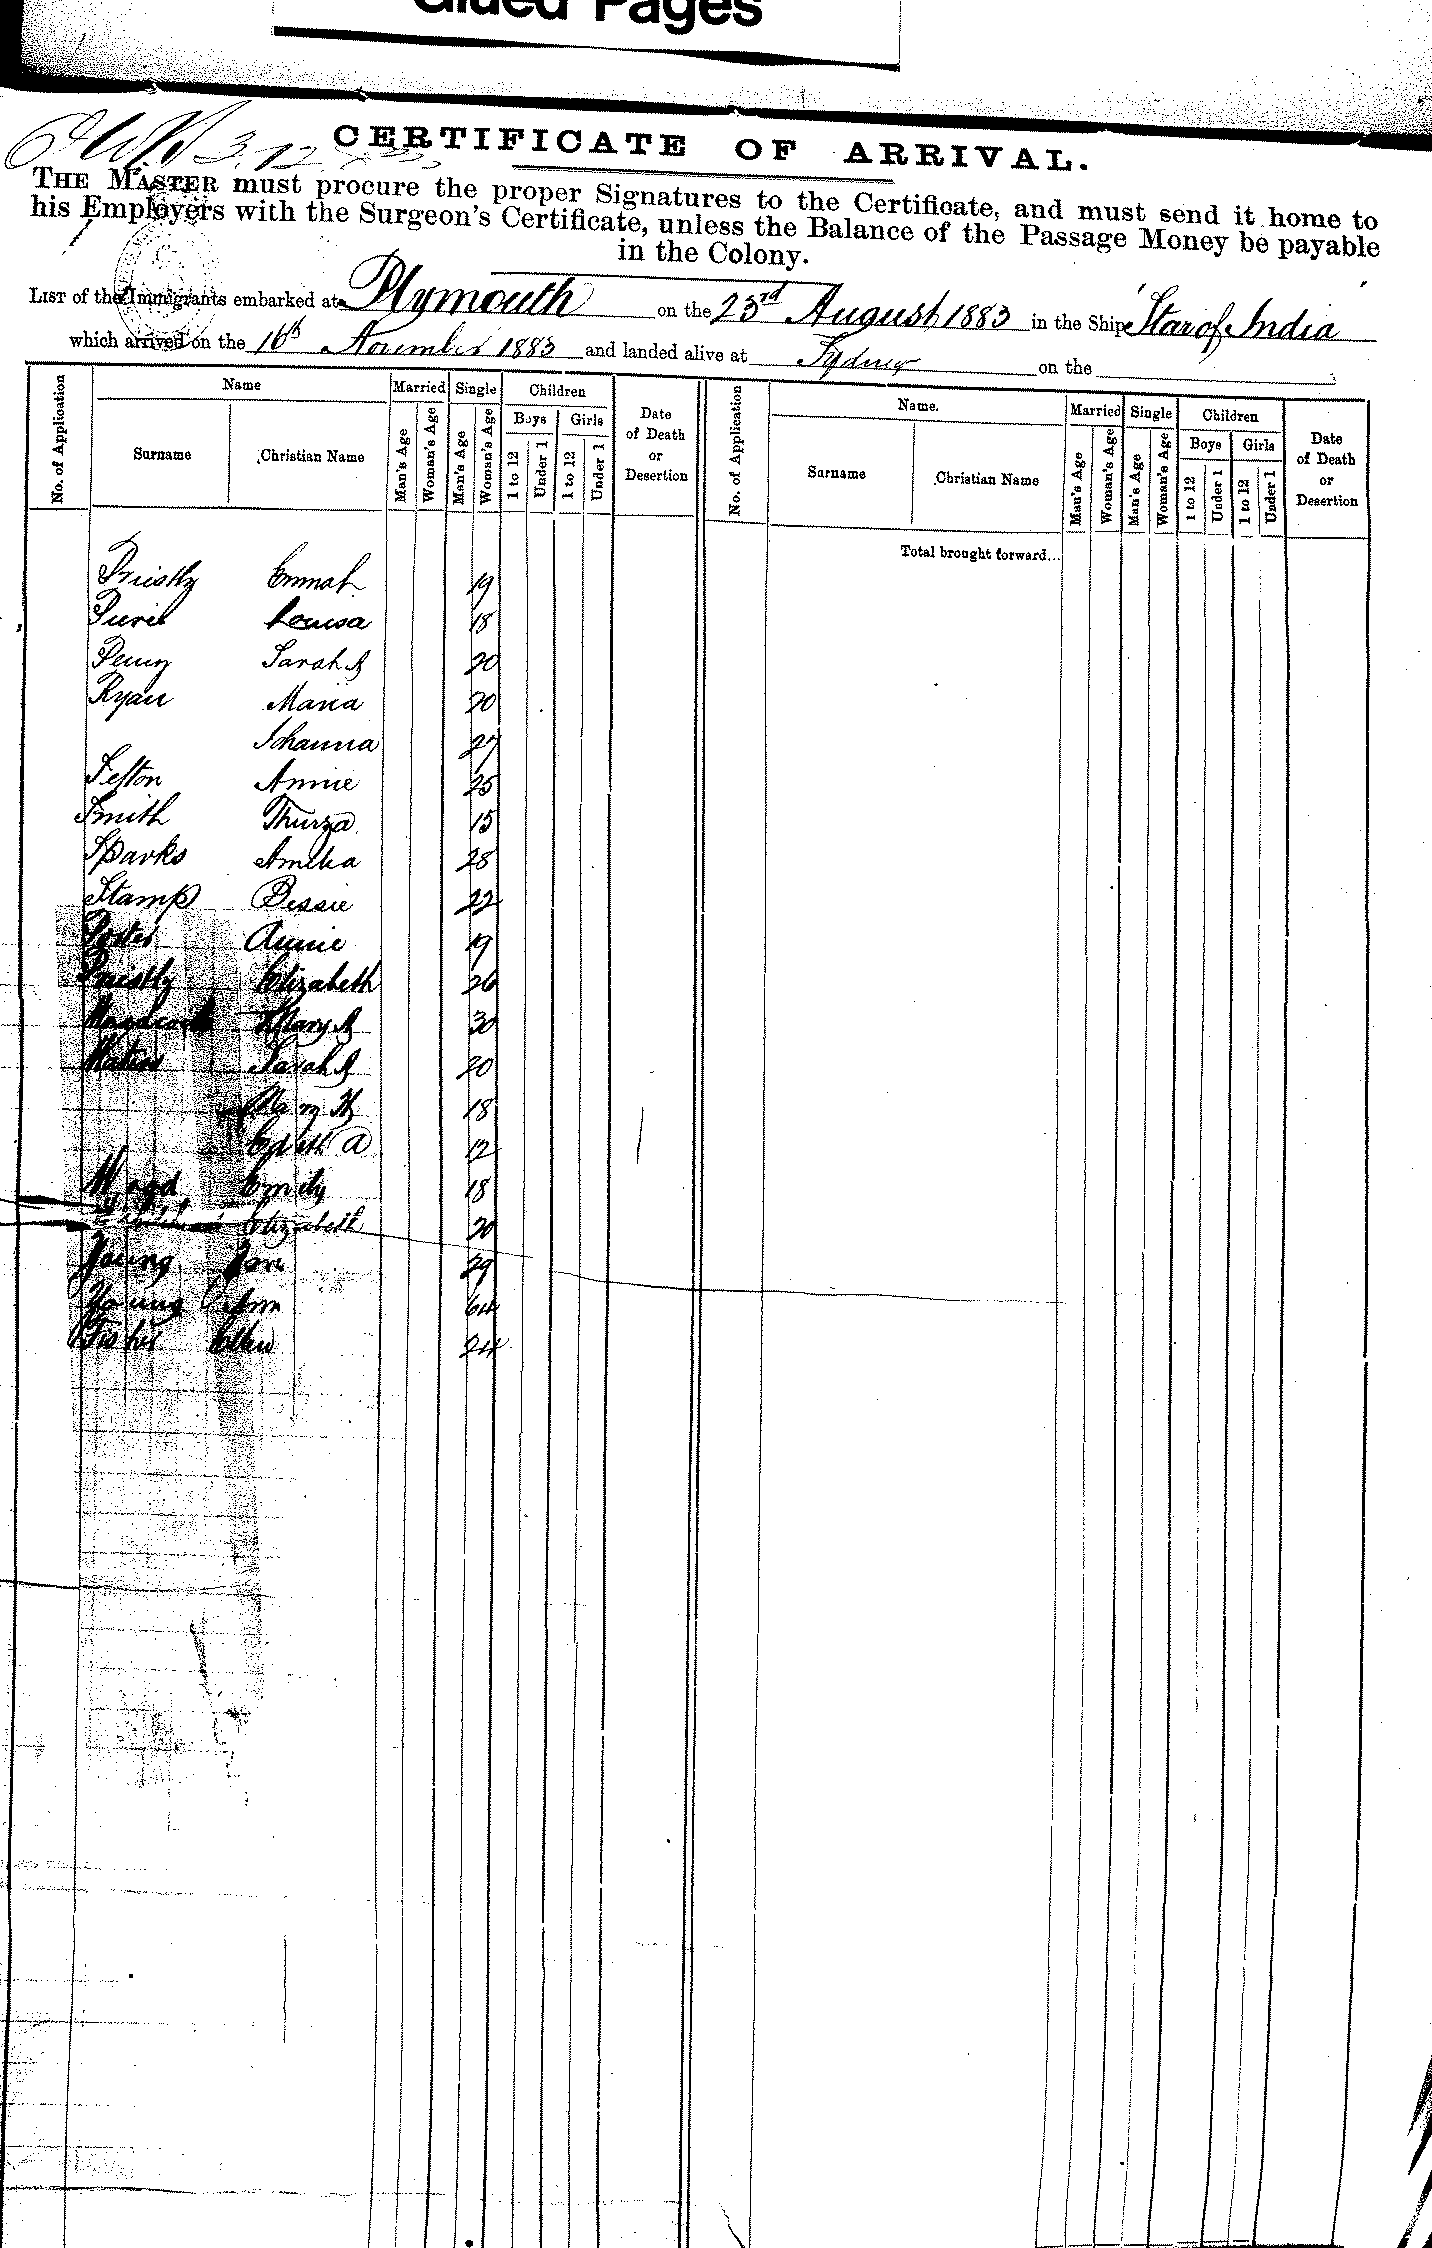 Glued Pages
3.12.83
CERTIFICATE OF ARRIVAL.
THE MASTER must procure the proper Signatures to the Certificate, and must send it home to
his Employers with the Surgeon's Certificate, unless the Balance of the Passage Money be payable
in the Colony.
LIST of the Immigrants embarked at Plymouth on the 23rd August 1883 in the Ship Star of India
which arrived on the 16th November 1883 and landed alive at Sydney on the
No. of Application Name Married Single Children Date of Death or Desertion No. of Application Name. Married Single Children Date of Death or Desertion
Surname Christian Name Man's Age Woman's Age Man's Age Woman's Age Boys Girls Surname Christian Name Man's Age Woman's Age Man's Age Woman's Age Boys Girls
1 to 12 Under 1 1 to 12 Under 1 1 to 12 Under 1 1 to 12 Under 1
Total brought forward...
Priestly Emmah 19
Louisa 18
Penny Sarah A 20
Ryan Maria 20
Johanna 27
Annie 25
Smith Thurza 15
Sparks Amelia 28
Stamp Bessie 22
Porter Annie 19
Priestly Elizabeth 26
Mary A 30
Sarah A 20
Mary H 18
Edith A 12
Emily 18
Elizabeth 20
Young Jane 29
Young Ann 64
Fisher Ellen 24